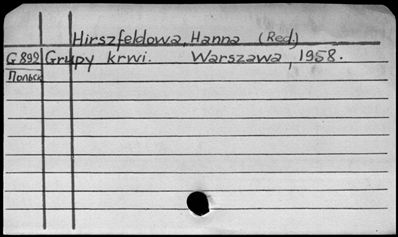 Hirszfeldowa, Hanna (Red.)
G 892 Grupy krwi. Warszawa, 1958.
Польск